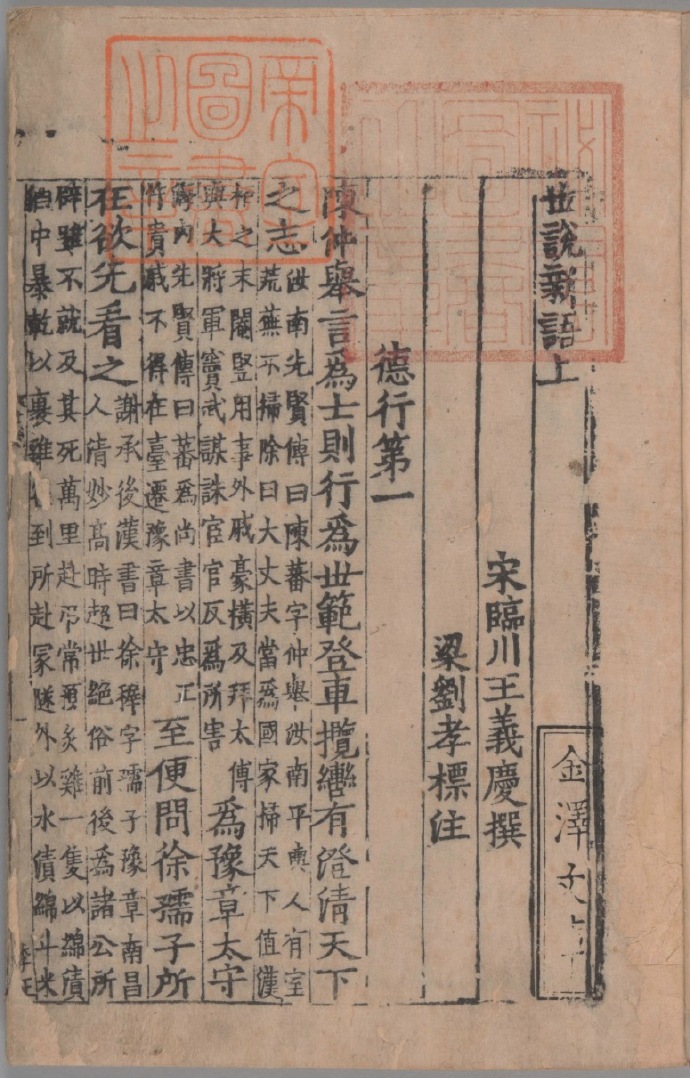 世說新語上
金澤文庫
宋臨川王義慶撰
梁劉孝標注
德行第一
陳仲舉言爲士則行爲世範登車攬轡有澄清天下
之志
汝南先賢傳曰陳蕃字仲舉汝南平輿人有室
荒蕪不掃除曰大丈夫當爲國家掃天下值漢
桓之末閹豎用事外戚豪橫及拜太傅
與大將軍竇武謀誅宦官反爲所害
爲豫章太守
海內先賢傳曰蕃爲尚書以忠正
忤貴戚不得在臺遷豫章太守
至便問徐孺子所
在欲先看之
謝承後漢書曰徐穉字孺子豫章南昌
人清妙高時超世絕俗前後爲諸公所
辟雖不就及其死萬里赴弔常預炙雞一隻以綿漬
酒中暴乾以裹雞徑到所赴冢隧外以水漬綿斗米
圖書之章